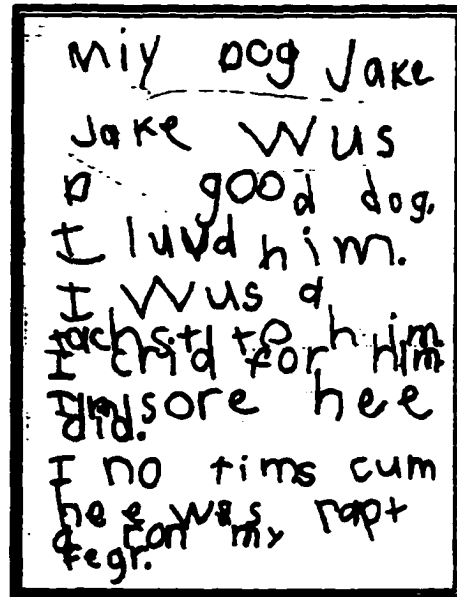 miy Dog Jake
Jake Wus
a good dog.
I luvd him.
I Wus a
tachst to him
I crid for him
Im sore hee
did.
I no tims cum
hee Wus rapt
a ron my
fegr.